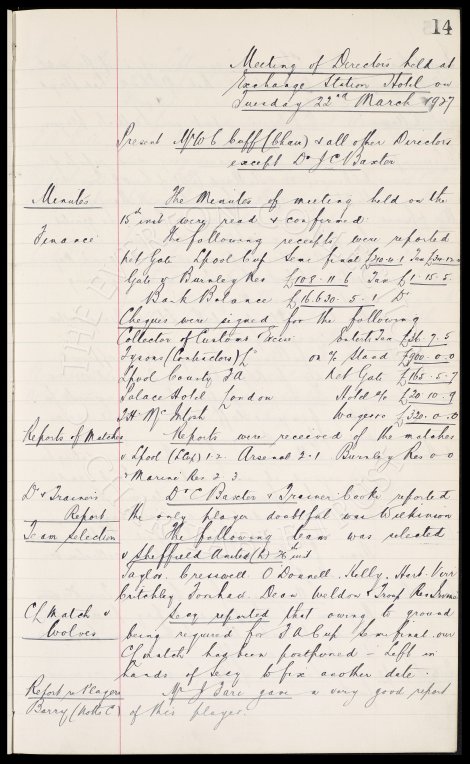 14
Meeting of Directors held at
Exchange Station Hotel on
Tuesday 22nd March 1927
Present Mr W C Cuff (Chair) & all other Directors
except Dr J C Baxter
Minutes The Minutes of meeting held on the
15th inst were read & confirmed.
Finance The following receipts were reported
Net Gate Lpool Cup Semi final Tax
Gate v Burnley Res £108. 11. 6 Tax £1. 15. 5.
Bank Balance £16630. 5. 1 Dr
Cheques were signed for the following
Collector of Customs & Excise Entert. Tax £36. 7. 5
Tysons (Contractors) Ld on a/c Stand £900. 0. 0
Lpool County FA Net Gate £165. 5. 7
Palace Hotel London Hotel a/c £20 10. 9
T.H. McIntosh Wages &c £320. 0. 0
Reports of Matches Reports were received of the matches
v Lpool (LCup) 1. 2. Arsenal 2. 1 Burnley Res 0. 0
& Marine Res 2. 3.
Dr & Trainers Dr C Baxter & Trainer Cooke reported
Report the only player doubtful was Wilkinson
Team Selection The following team was selected
v Sheffield United (h) 26th inst
Taylor. Cresswell O'Donnell. Kelly. Hart. Virr
Critchley Irvine Dean Weldon & Troup Res
CL Match v Secy reported that owing to ground
Wolves being required for FA Cup Semi final our
CL match had been postponed – Left in
hands of Secy to fix another date.
Report re Mr J Sare gave a very good report
Barry (Notts C) of this player.